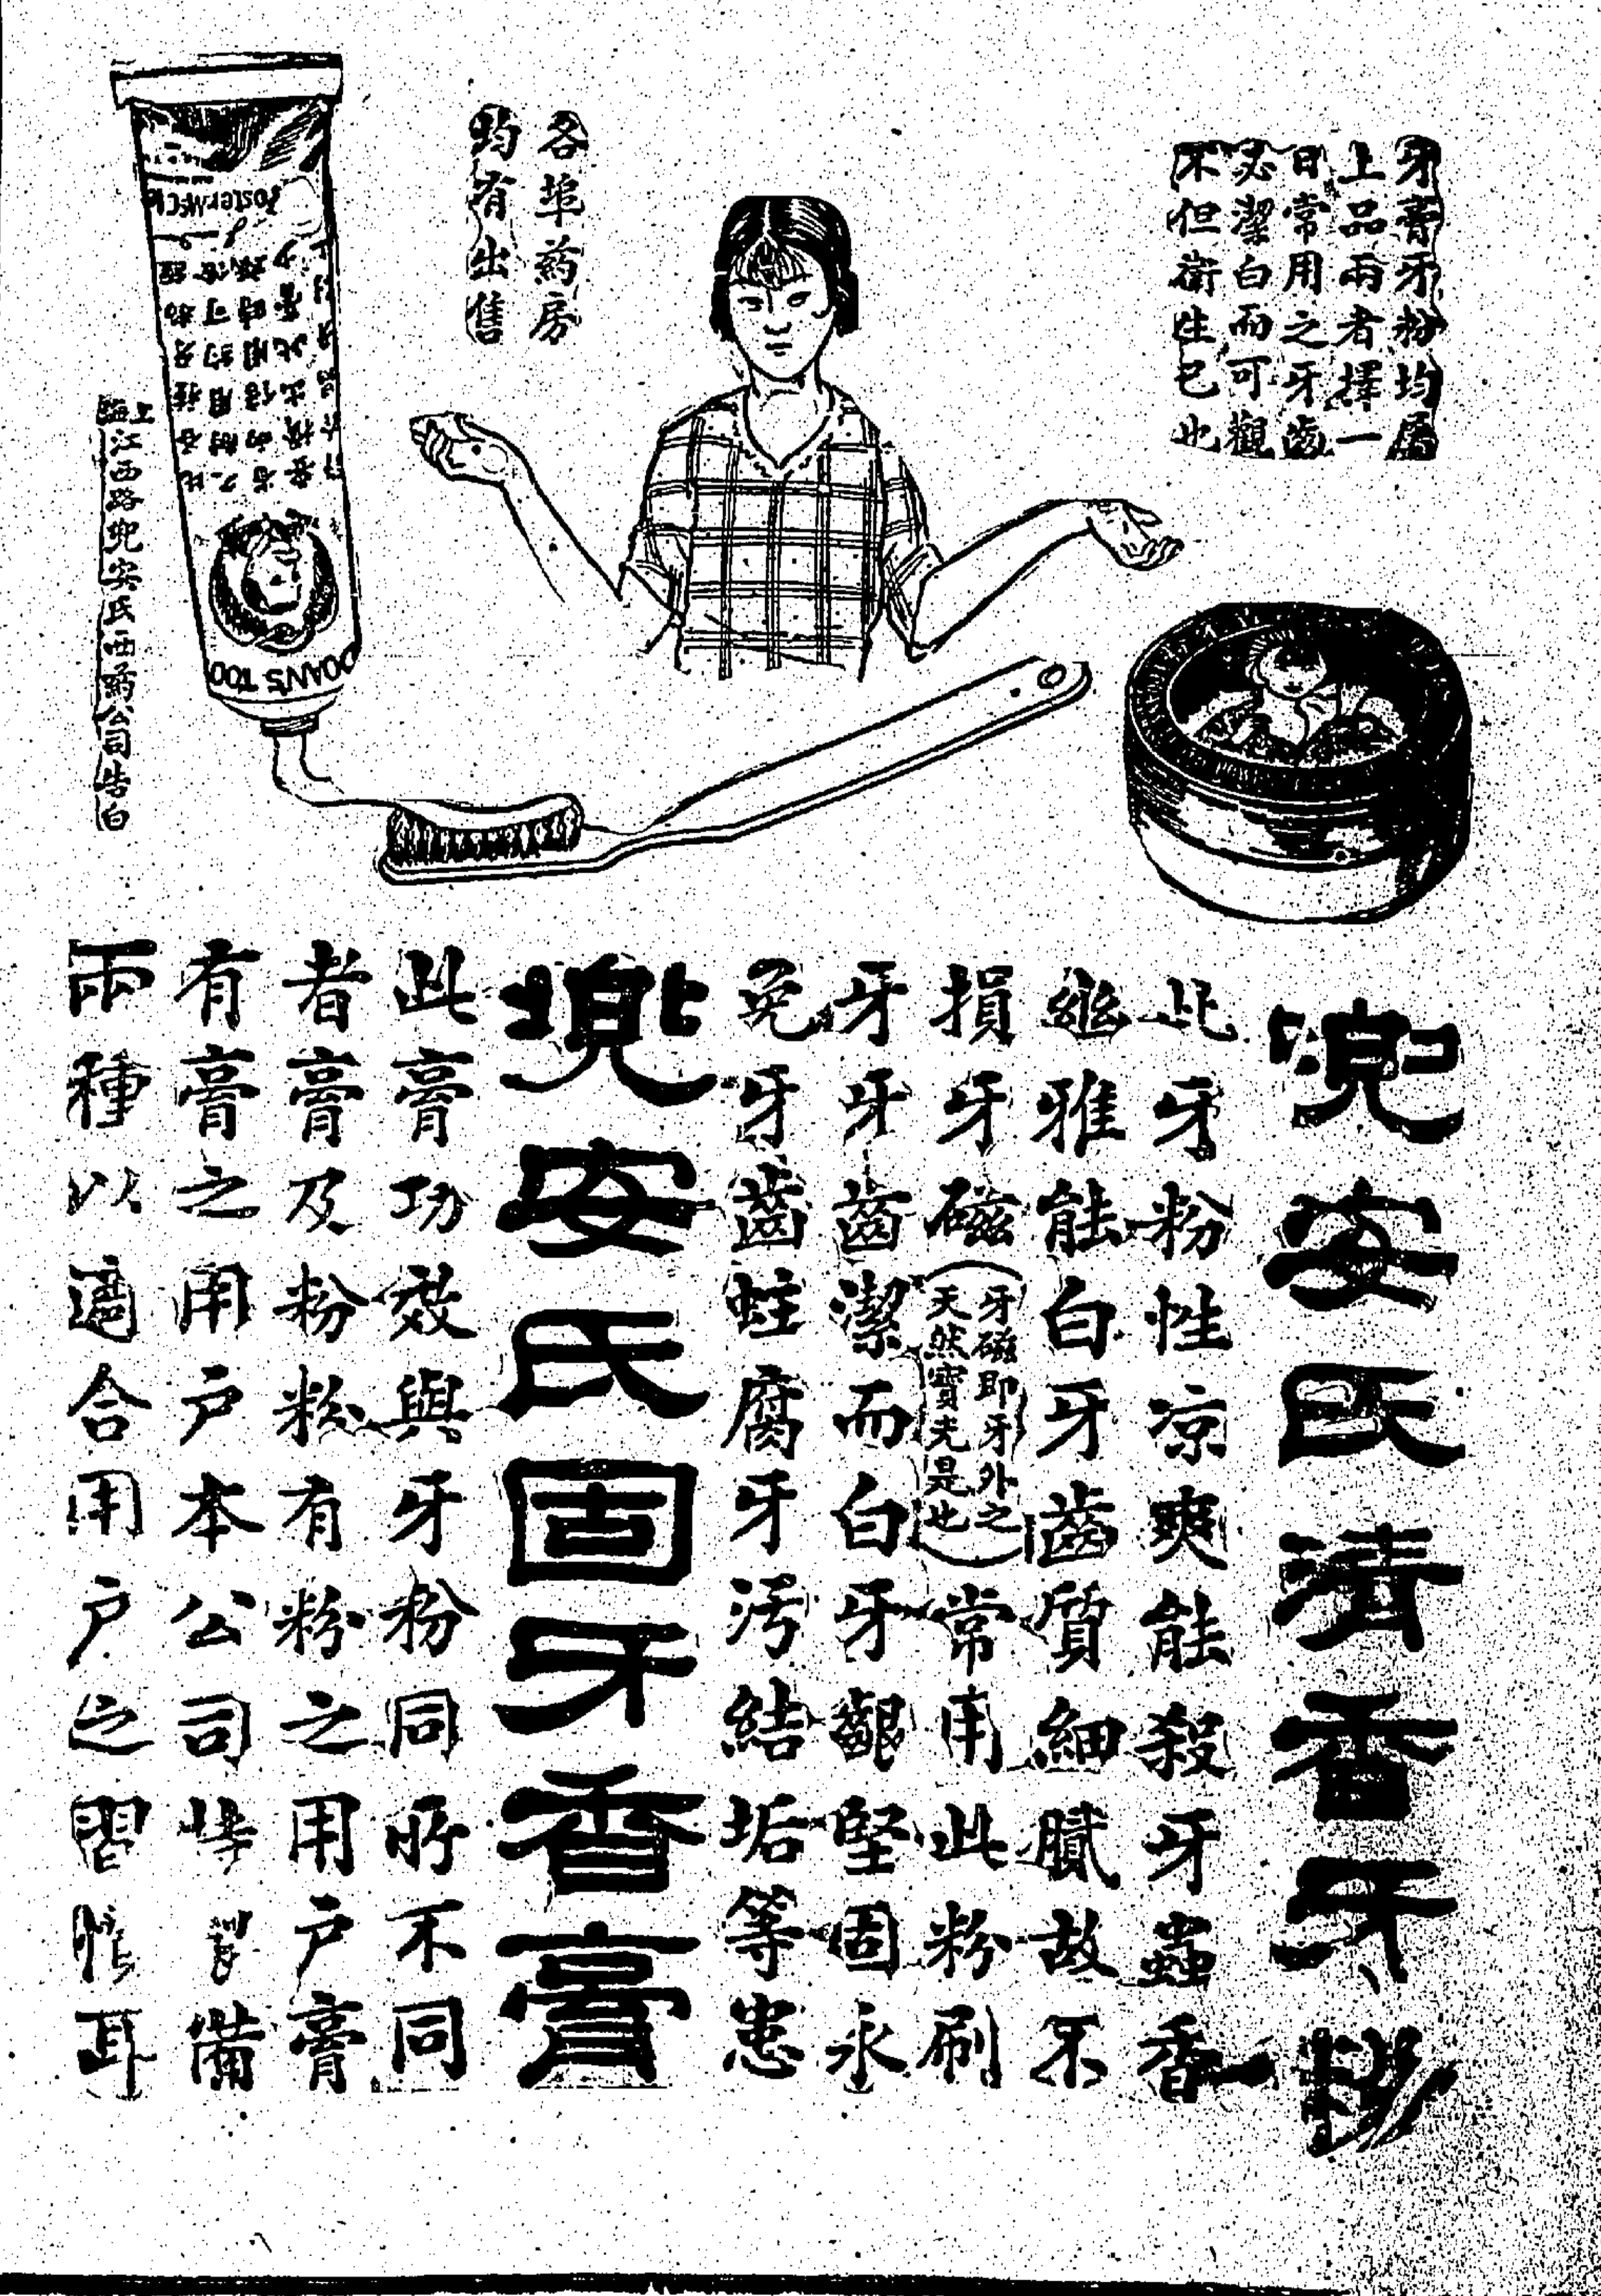 牙膏牙粉均屬
上品兩者擇一
日常用之牙齒
必潔白而可觀
不但衛生已也
各埠药房
均有出售
江西路兜安氏西藥公司告白
DOAN'S TOO
兜安氏清香牙粉
此牙粉性凉爽能殺牙蟲香
繼雅能白牙齒質細膩故不
損牙磁（牙磁即牙外之天然寶光是也）常用此粉刷
牙牙齒潔而白牙齦堅固永
免牙齒蛀腐牙污結垢等患
兜安氏固牙香膏
此膏功效與牙粉同所不同
者膏及粉粉有粉之用户膏
有膏之用户本公司特製備
兩種以適合用户之習慣耳